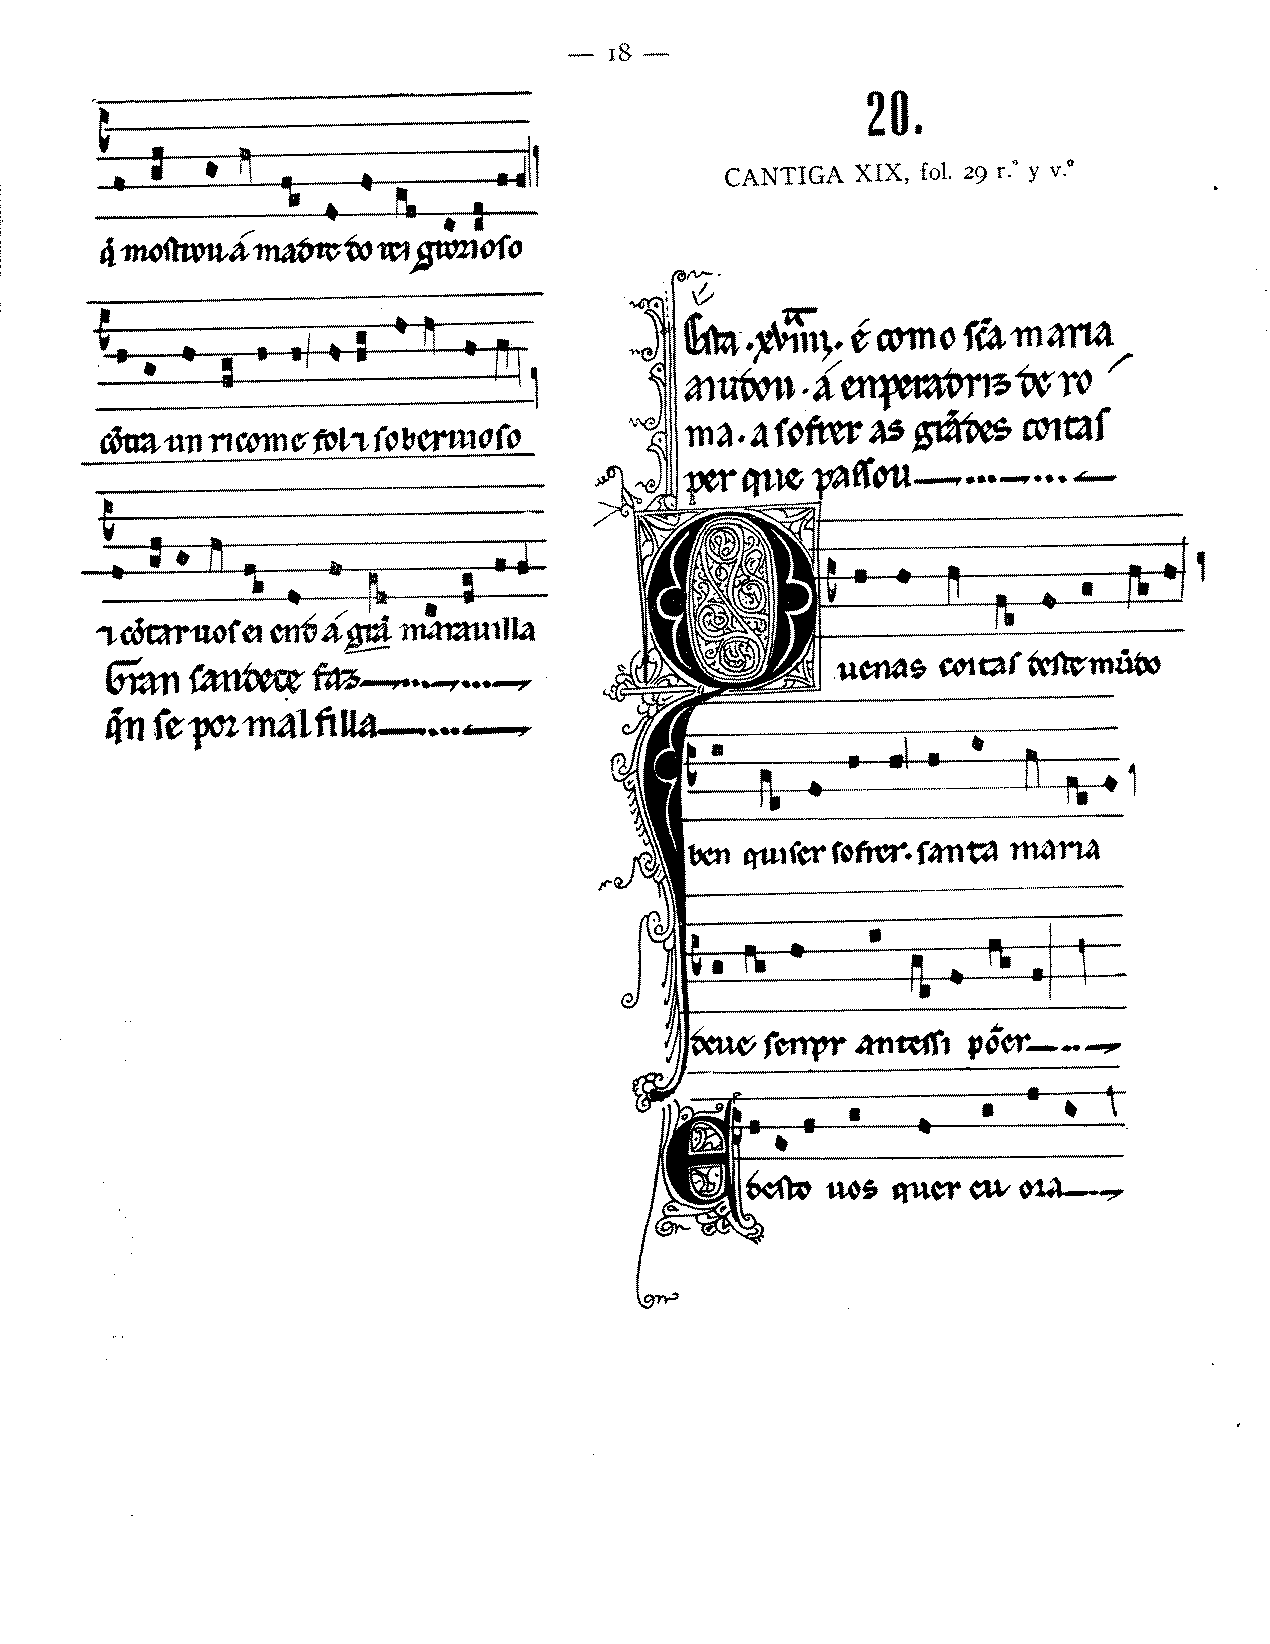 — 18 —
q̄ mostrou á madre do rei grorioso
cōtra un ricome fol ⁊ sobervioso
⁊ cōtar uos ei end á grā marauilla
Gran sandece faz
q̄n se por mal filla
20.
CANTIGA XIX, fol. 29 r.º y v.º
Esta .xviiij. é como sc̄a maria
aiudou . á enperadriz de ro
ma . a sofrer as grādes coitas
per que passou
Quenas coitas deste mūdo
ben quiser sofrer. santa maria
deue senpr antessi pōer
E desto uos quer eu ora